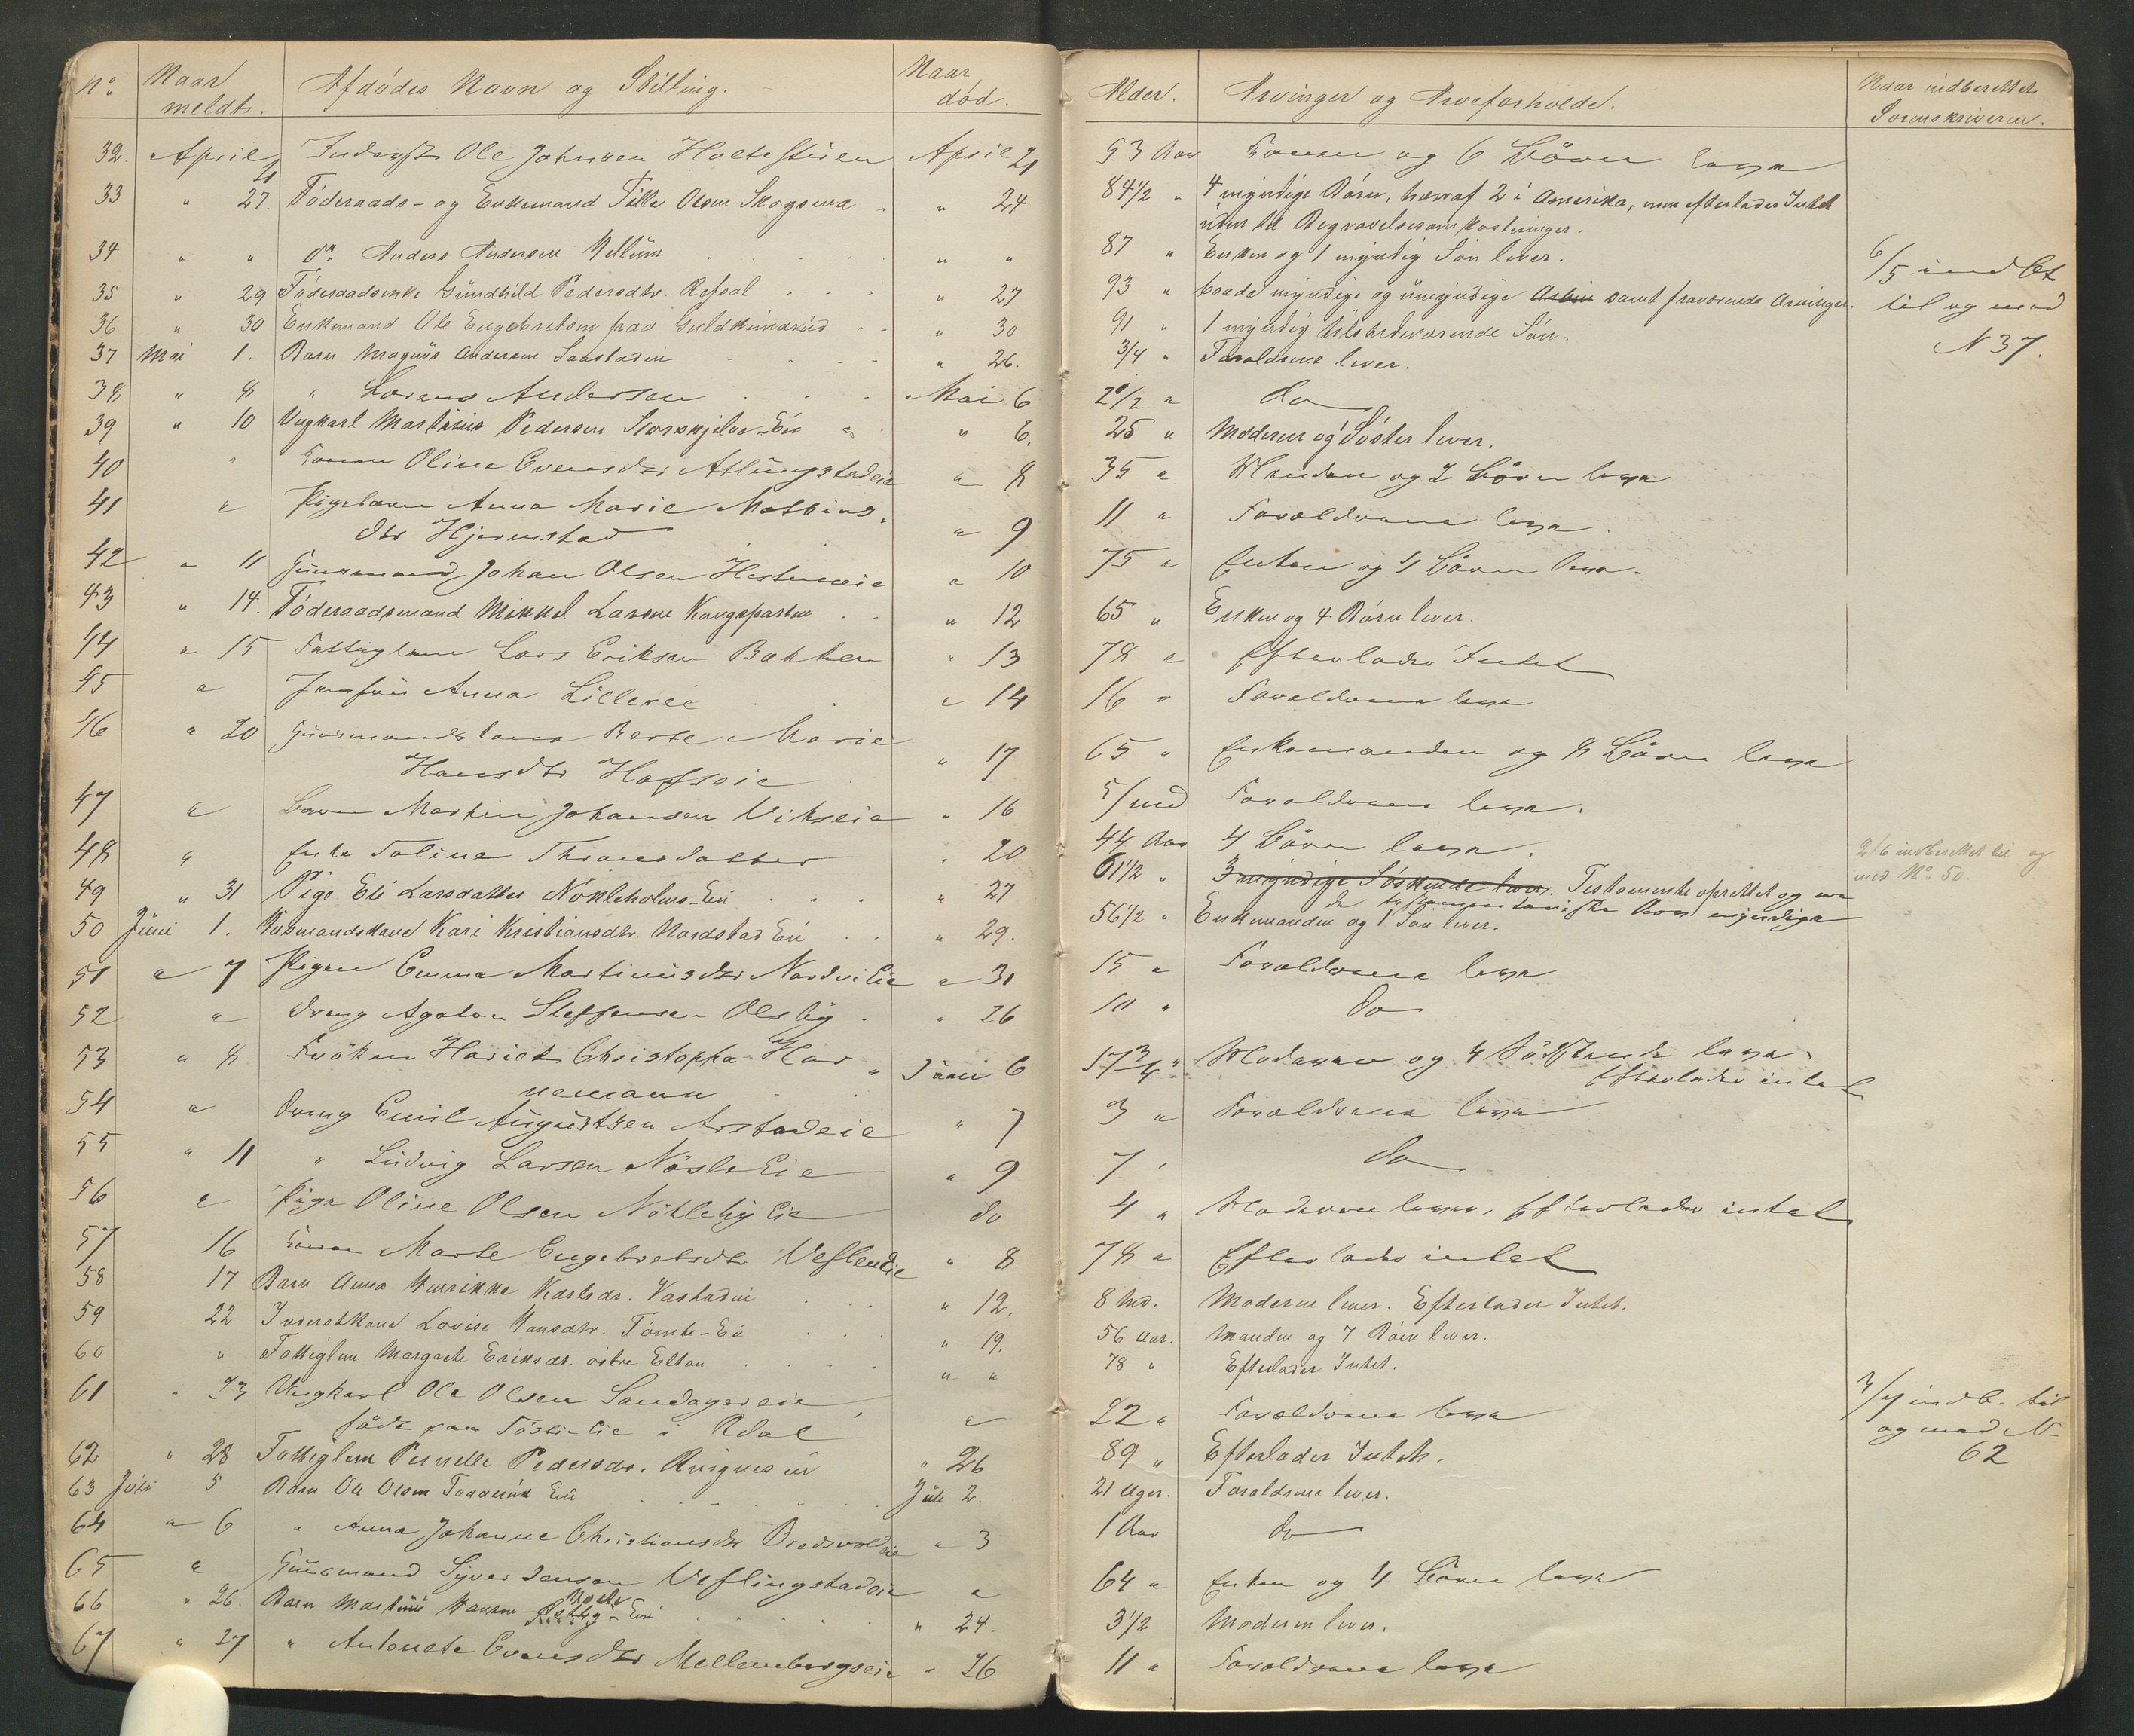 No. Naar meldt. Afdödes Navn og Stilling. Naar död. Alder. Arvinger og Arveforholde. Naar indberettet Sorenskriveren.
32 April Inderst Ole Johnsen April 21 53 Aar Konen og 6 Börn leve
33 " 27. Föderaads- og Enkemand Tille Olsen Skogsrud " 24 84 1/2 " 4 myndige Börn, hvoraf 2 i Amerika, men efterlader Intet
uden til Begravelsesomkostninger.
34 " " do Anders Andersen " " 87 " Enken og 1 myndig Sön lever.
35 " 29 Föderaadsenke Gundhild Pedersdtr. Refsal " 27 93 " baade myndige og umyndige samt fraværende Arvinger.
6/5 indb
til og med
N 37.
36 " 30 Enkemand Ole Engebretsen fra Guldkundrud " 30 91 " 1 myndig tilstedeværende Sön.
37 Mai 1. Barn Magnus Andersen Saastadeie " 26. 3/4 " Forældrene lever.
38 " 8 " Lorens Andersen Mai 6 2 1/2 " do
39 " 10 Ungkarl Martinius Pedersen Storskjelve-Eie " 6. 25 " Moderen og Söster lever.
40 " Konen Oline Evensdtr Atlungstadeie " 8 35 " Manden og 2 Börn leve
41 " Pigebarn Anna Marie Mathias-
dtr Hjermstad " 9 11 " Forældrene leve.
42 " 11 Huusmand Johan Olsen " 10 75 " Enken og 4 Börn leve.
43 " 14. Föderaadsmand Mikkel Larsen Kongsparten " 12 65 " Enken og 4 Börn lever.
44 " 15 Fattiglem Lars Eriksen Bakken " 13 78 " Efterlader Intet
45 " Jomfru Anna Lilleeie " 14 16 " Forældrene leve
46 " 20 Huusmandskone Berte Marie
Hansdtr Hofseie " 17 65 " Enkemanden og 8 Börn leve
47 " Barn Martin Johansen Vikseie " 16 5/md Forældrene leve.
48 " Enke Toline Thronsdatter " 20 44 Aar 4 Börn leve.
49 " 31 Pige Eli Larsdatter Nökleholms-Eie " 27 61 1/2 " 3 myndige Söskende lever. Testamente oprettet og
de testamentariske Arv. myndige
2/6 indberettet til og
med No. 50.
50 Juni 1. Husmandskone Kari Kristiansdtr. Nordstad Eie " 29. 56 1/2 " Enkemanden og 1 Sön lever.
51 " 7 Pigen Emma Martinusdtr Nordvi Eie " 31 15 " Forældrene leve
52 " Dreng Agaton Steffensen Olsby " 26 10 " do
53 " 8 Fröken Hariet Christopha Hor-
nemann " Juni 6 17 3/4 " Moderen og 4 Södskende leve.
Efterlader intet
54 " Dreng Emil Augustsen Arstadeie " 7 3 " Forældrene leve
55 " 11 " Ludvig Larsen Nösle Eie " 9 7 " do
56 " Pige Oline Olsen Nökleby Eie do 4 " Moderen lever, Efterlader intet
57 16 Konen Marte Engebretsdtr " 8 78 " Efterlader intet
58 17 Barn Anna Karlsdr. Vastadeie " 12. 8 Md. Moderen lever. Efterlader Intet.
59 22 Inderstkone Lovise Hansdtr. Tomte-Eie " 19. 56 Aar. Manden og 7 Börn lever.
60 " Fattiglem Margrete Eriksdr. östre Elton " " 78 " Efterlader Intet.
61 " 23 Ungkarl Ole Olsen Sandagereie,
födt paa eie i Rdal " 22 " Forældrene leve
3/7 indb. til
og med N-
62
62 " 28 Fattiglem Pernelle Pedersdr. Ringnes eie " 26 89 " Efterlader Intet.
63 Juli 5 Barn Ole Olsen Eie Juli 2. 21 Uger. Forældrene lever.
64 " 6 " Anna Johanne Christiansdtr Bredvoldeie " 3 1 Aar do
65 " Huusmand Syver Jensen Veflingstadeie " 64 " Enken og 4 Börn leve
66 " 26. Barn Martinus Hansen -Eie " 24. 3 1/2 Moderen lever.
67 " 27 " Antonete Evensdtr Mellembergseie " 26 11 " Forældrene leve